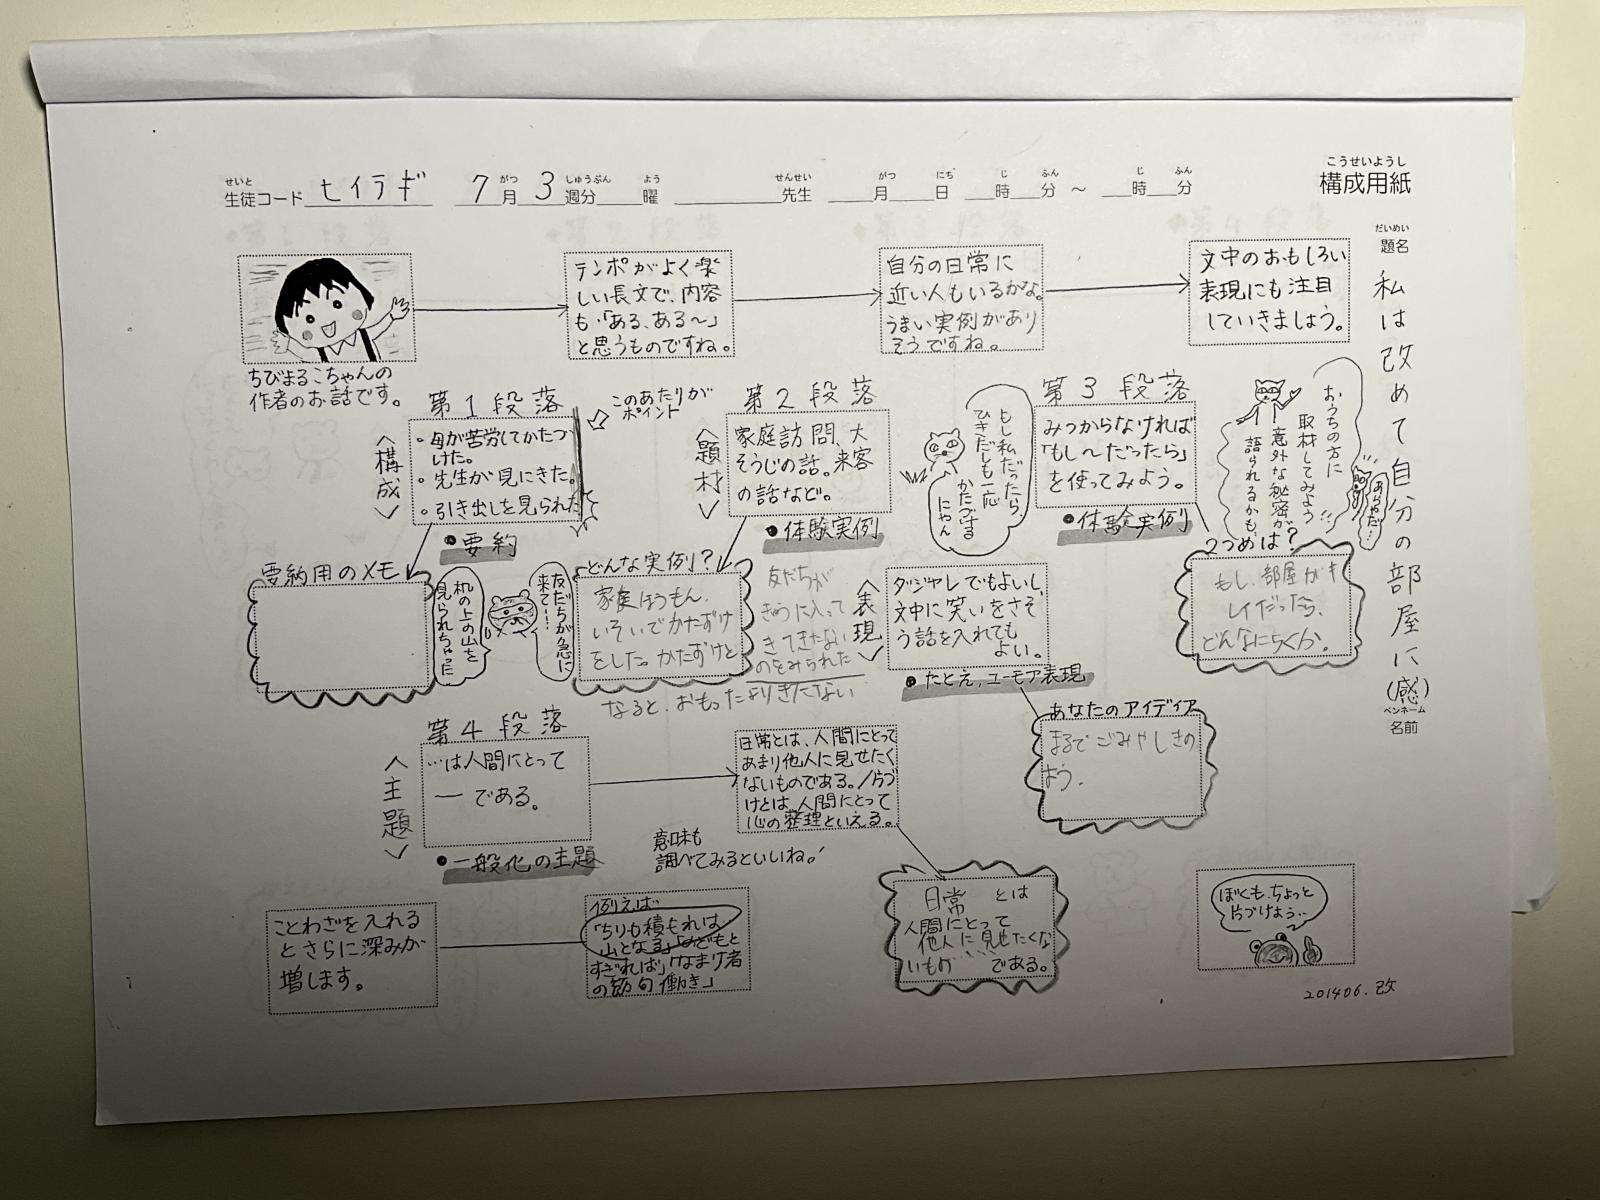 こうせいようし
構成用紙
せいと がつ しゅうぶん よう せんせい がつ にち じ ふん じ ふん
生徒コード ヒイラギ 7月 3週分 曜 先生 月 日 時 分 ～ 時 分
だいめい
題名
私は改めて自分の部屋に(感)
ペンネーム
名前
ちびまるこちゃんの
作者のお話です。
テンポがよく楽
しい長文で、内容
も「ある、ある～」
と思うものですね。
自分の日常に
近い人もいるかな。
うまい実例があり
そうですね。
文中のおもしろい
表現にも注目
していきましょう。
第1段落
〈構成〉
・母が苦労してかたづ
けた。
・先生が見にきた。
・引き出しを見られた
このあたりが
ポイント
●要約
要約用のメモ
机の上の山を
見られちゃった
第2段落
〈題材〉
家庭訪問、大
そうじの話。来客
の話など。
●体験実例
友だちが急に
来て…!
どんな実例?
家庭ほうもん、
いそいでかたずけ
をした。かたずけと
なると、おもったよりきたない
友だちが
きゅうに入って
きてきたない
のをみられた
もし私だったら、
ひきだしも一応
かたづける
にゃん
第3段落
みつからなければ
「もし～だったら」
を使ってみよう。
●体験実例
おうちの方に
取材してみよう!!
意外な秘密が
語られるかも
あらやだ…
2つめは?
もし、部屋がキ
レイだったら、
どんなにらくか。
〈表現〉
ダジャレでもよいし、
文中に笑いをさそ
う話を入れても
よい。
●たとえ、ユーモア表現
あなたのアイディア
まるでごみやしきの
よう。
第4段落
〈主題〉
…は人間にとって
― である。
●一般化の主題
日常とは、人間にとって
あまり他人に見せたく
ないものである。/片づ
けとは、人間にとって
心の整理といえる。
意味も
調べてみるといいね!
日常 とは
人間にとって
他人に見せたくな
いもの である。
ことわざを入れる
とさらに深みが
増します。
例えば
「ちりも積もれば
山となる」「のどもと
すぎれば」「なまけ者
の節句働き」
ぼくも、ちょっと
片づけよう…
201406.改